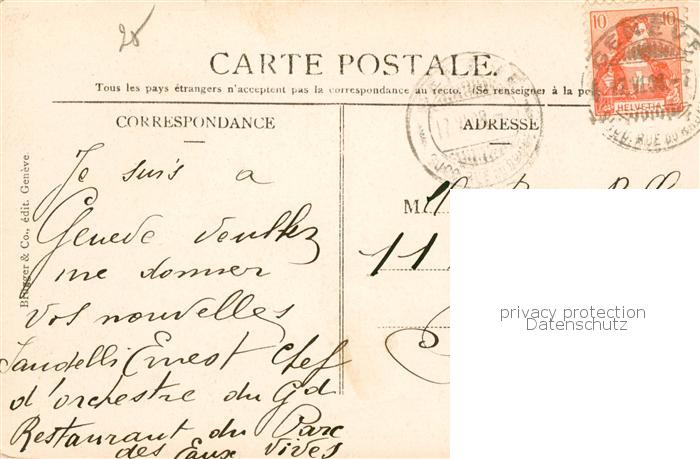 25
CARTE POSTALE.
Tous les pays étrangers n'acceptent pas la correspondance au recto. (Se renseigner à la
CORRESPONDANCE
ADRESSE
10 10
HELVETIA
RUE DU
Brugger & Co., édit. Genève.
Je suis a
Geneve veuillez
me donner
vos nouvelles
Ernest Chef
d'orchestre du Gd
Restaurant du Parc
des Eaux Vives
M
11
privacy protection
Datenschutz